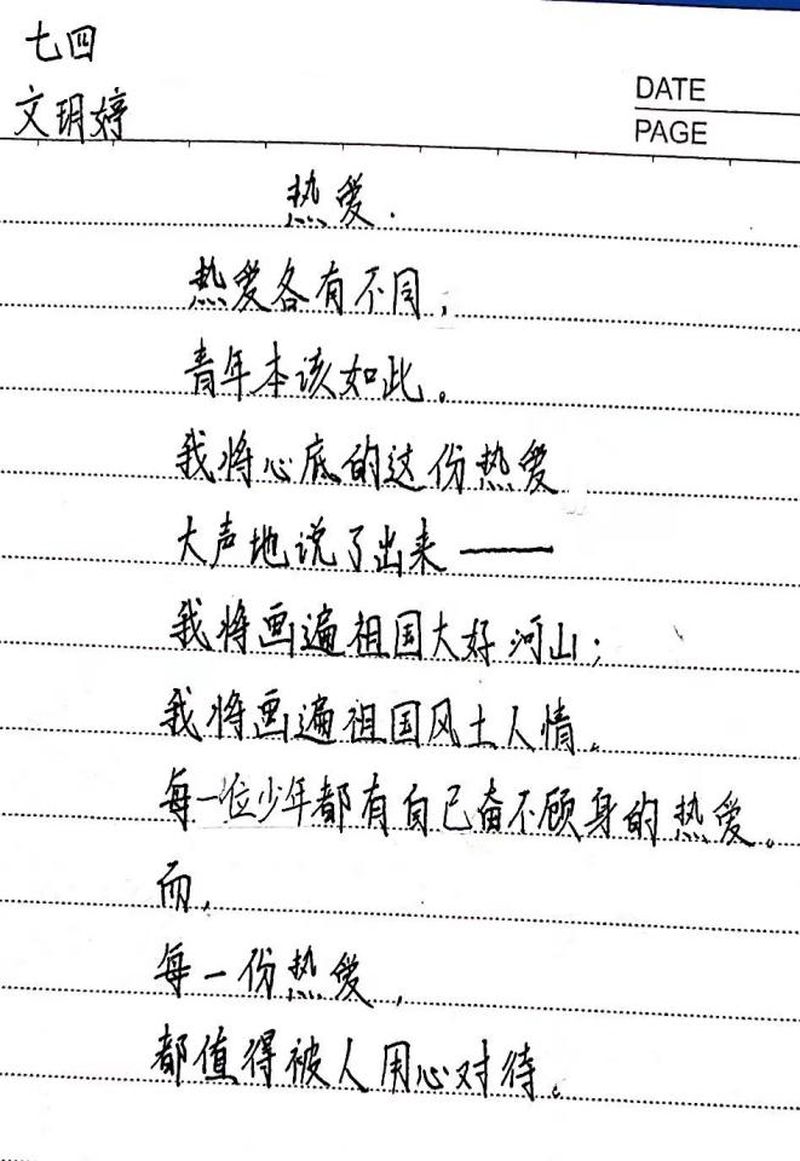 七四
文玥婷
DATE
PAGE
热爱.
热爱各有不同,
青年本该如此。
我将心底的这份热爱
大声地说了出来——
我将画遍祖国大好河山;
我将画遍祖国风土人情。
每一位少年都有自己奋不顾身的热爱。
而,
每一份热爱,
都值得被人用心对待。